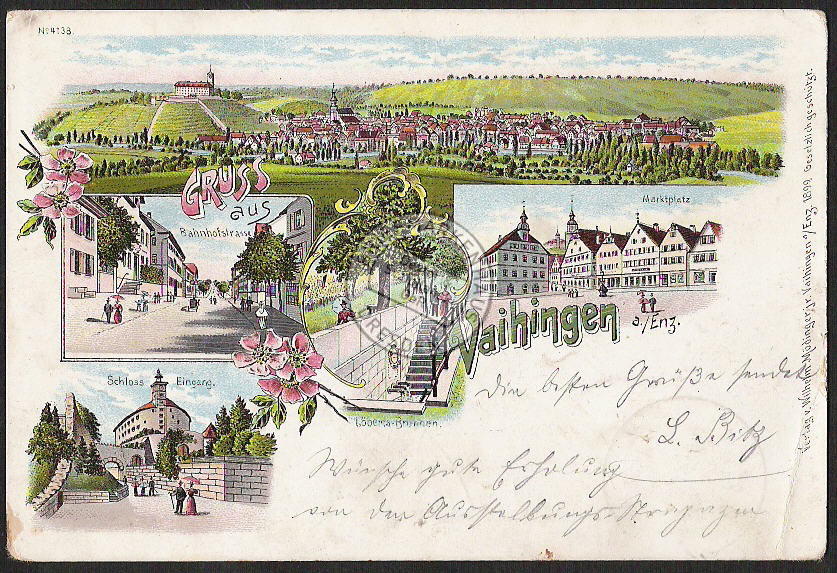 No 4138.
GRUSS
aus
Bahnhofstrasse
Marktplatz
Vaihingen
a./Enz.
Schloss Eingang.
Löbert's-Brunnen.
Die besten Grüße sendet
L. Bitz
Wünsche gute Erholung
von den Ausstellungs-Strapazen
Verlag v. Wilhelm Mößinger jr. Vaihingen a/Enz. 1899. Gesetzlich geschützt.